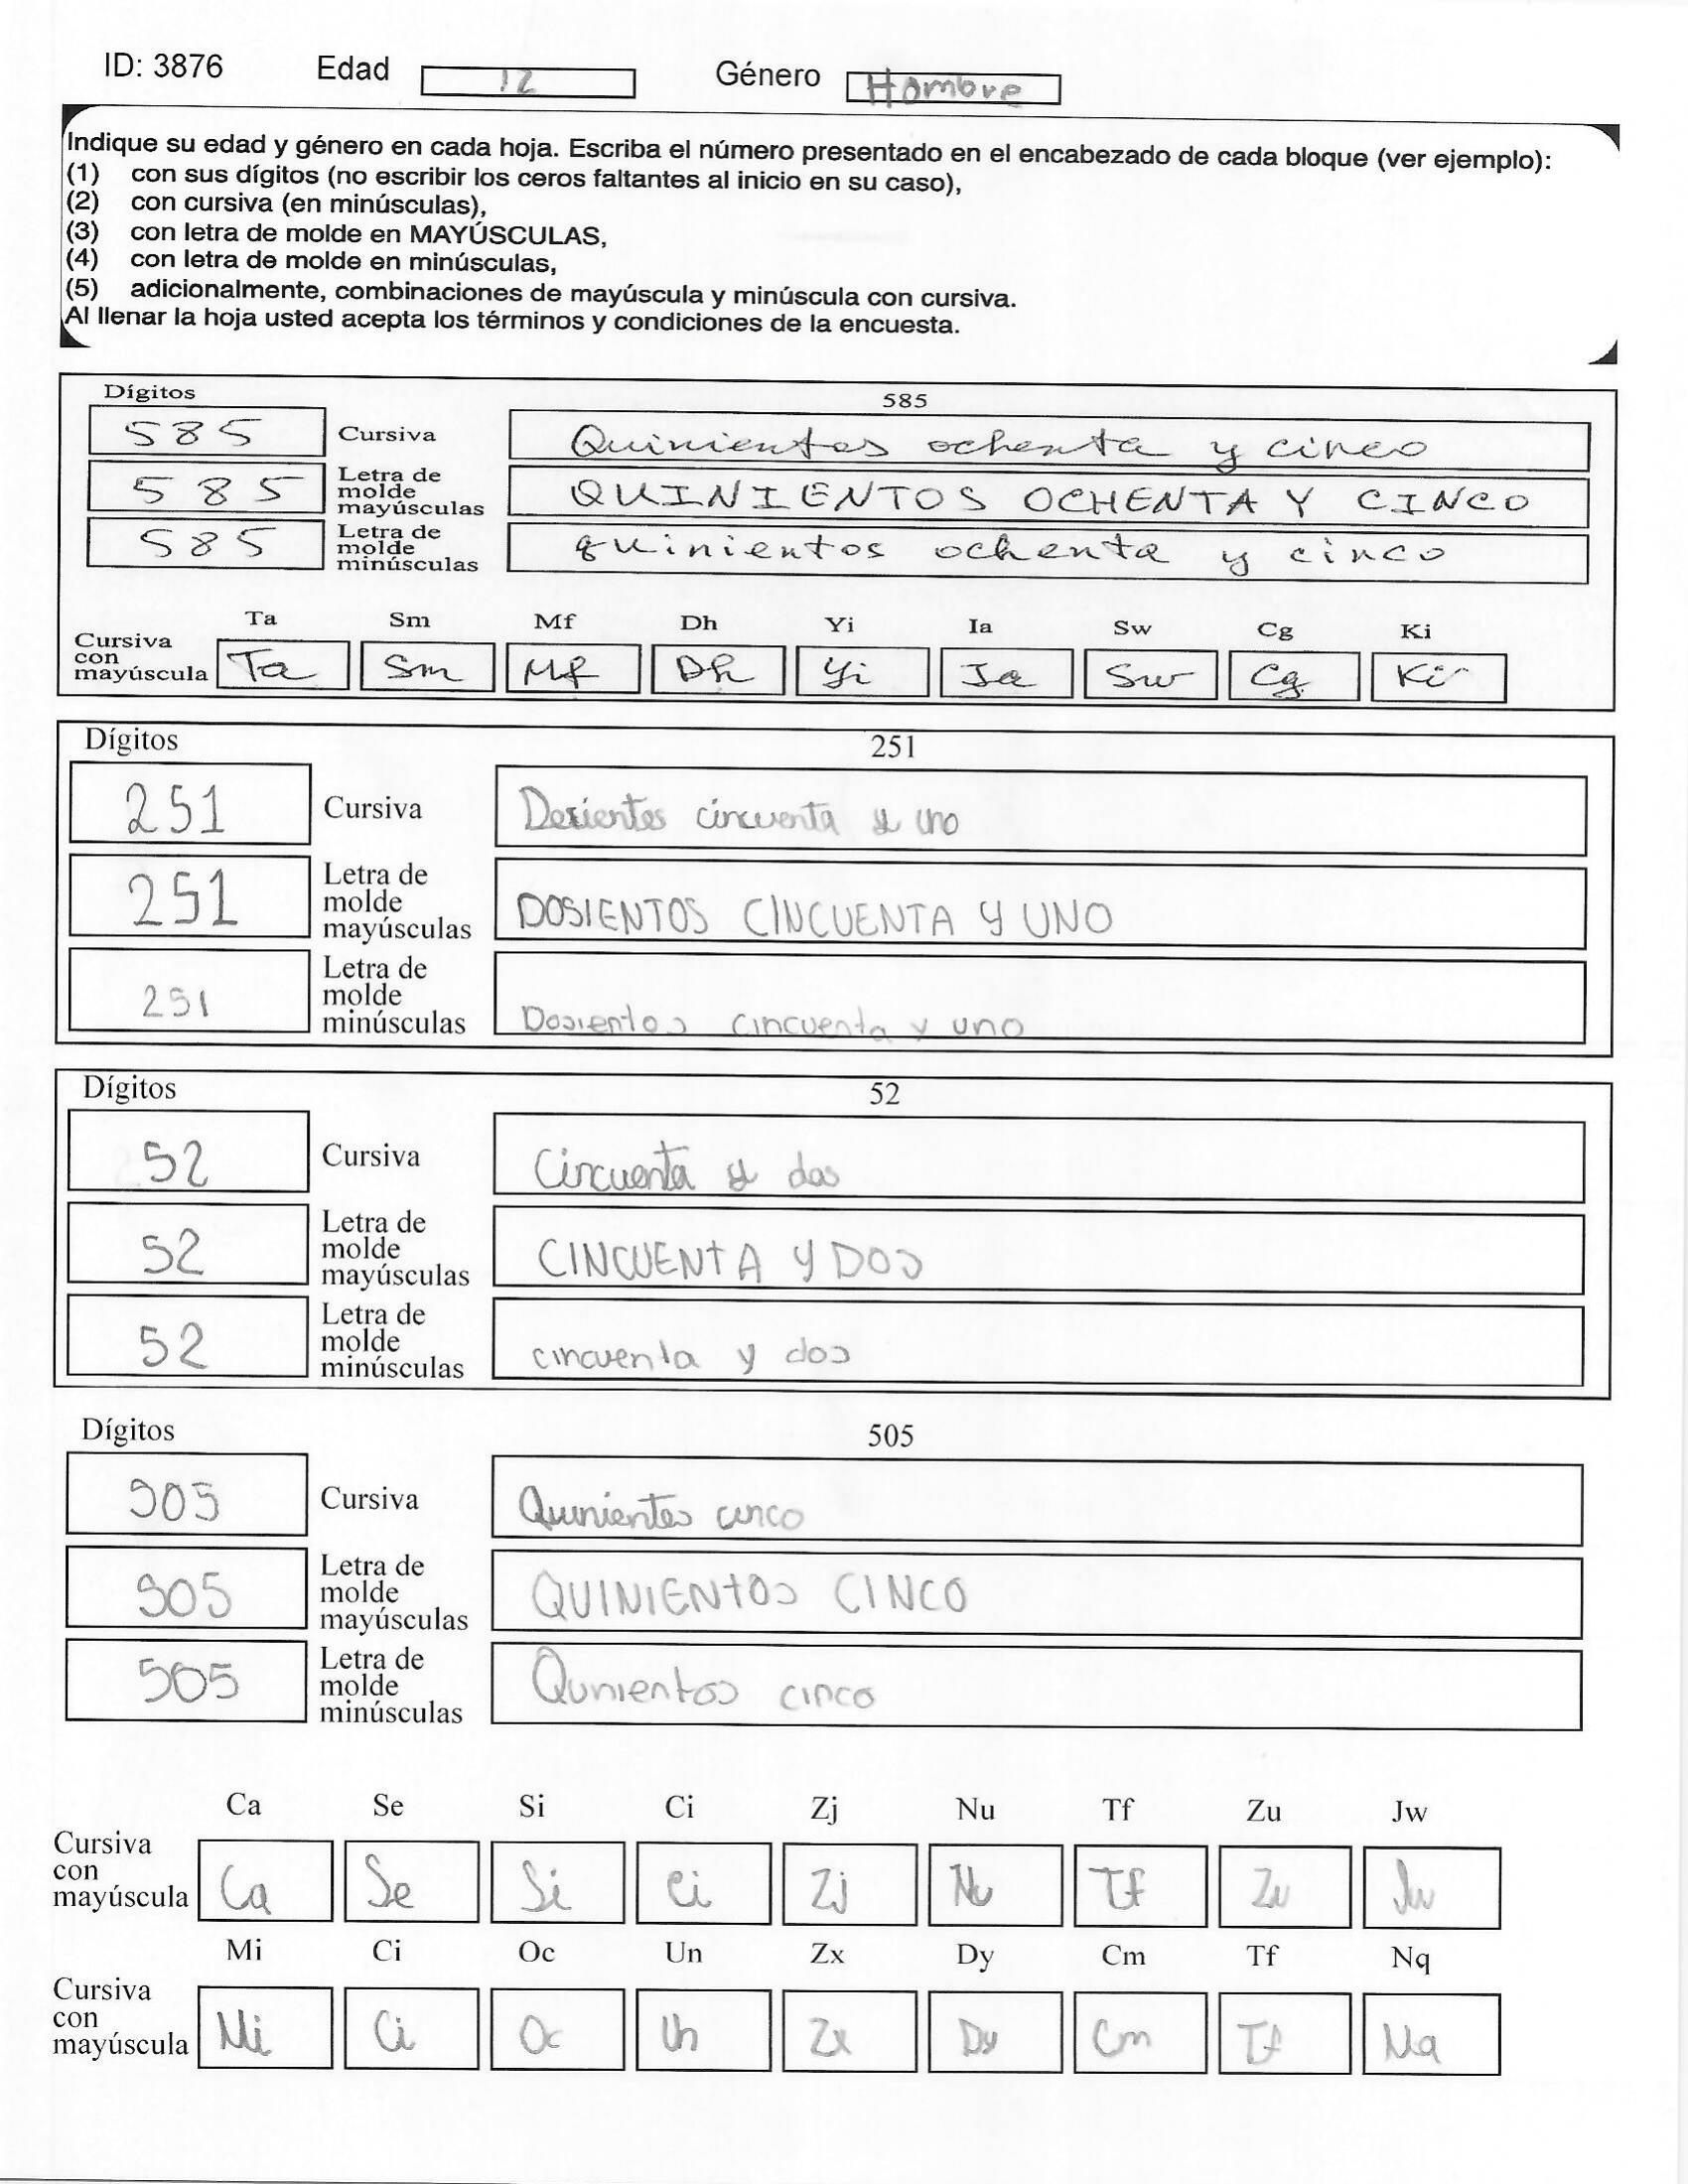 ID: 3876 Edad 12 Género Hombre
Indique su edad y género en cada hoja. Escriba el número presentado en el encabezado de cada bloque (ver ejemplo):
(1) con sus dígitos (no escribir los ceros faltantes al inicio en su caso),
(2) con cursiva (en minúsculas),
(3) con letra de molde en MAYÚSCULAS,
(4) con letra de molde en minúsculas,
(5) adicionalmente, combinaciones de mayúscula y minúscula con cursiva.
Al llenar la hoja usted acepta los términos y condiciones de la encuesta.
Dígitos 585
585 Cursiva Quinientos ochenta y cinco
585 Letra de molde mayúsculas QUINIENTOS OCHENTA Y CINCO
585 Letra de molde minúsculas quinientos ochenta y cinco
Ta Sm Mf Dh Yi Ia Sw Cg Ki
Cursiva con mayúscula Ta Sm Mf Dh Yi Ia Sw Cg Ki
Dígitos 251
251 Cursiva Dosientos cincuenta y uno
251 Letra de molde mayúsculas DOSIENTOS CINCUENTA Y UNO
251 Letra de molde minúsculas Dosientos cincuenta y uno
Dígitos 52
52 Cursiva Cincuenta y dos
52 Letra de molde mayúsculas CINCUENTA Y DOS
52 Letra de molde minúsculas cincuenta y dos
Dígitos 505
505 Cursiva Quinientos cinco
505 Letra de molde mayúsculas QUINIENTOS CINCO
505 Letra de molde minúsculas Qunientos cinco
Ca Se Si Ci Zj Nu Tf Zu Jw
Cursiva con mayúscula Ca Se Si Ci Zj Nu Tf Zu Jw
Mi Ci Oc Un Zx Dy Cm Tf Nq
Cursiva con mayúscula Mi Ci Oc Un Zx Dy Cm Tf Nq